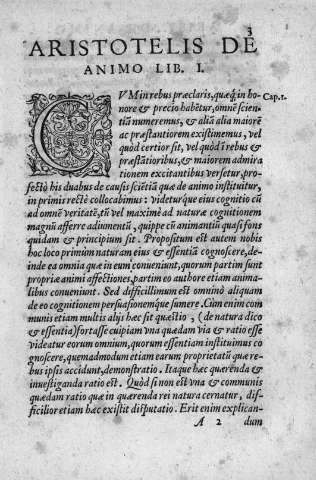 3
ARISTOTELIS DE
ANIMO LIB. I.
CVM in rebus præclaris, quæq́; in ho- Cap. 1.
nore & precio habẽtur, omnẽ scien-
tiã numeremus, & aliã alia maiorẽ
ac præstantiorem existimemus, vel
quòd certior sit, vel quòd ĩ rebus &
præstãtioribus, & maiorem admira
tionem excitantibus versetur, pro-
fectò his duabus de causis sciẽtiã quæ de animo instituitur,
in primis rectè collocabimus: videturq́ue eius cognitio cũ
ad omnẽ veritatẽ, tũ vel maximè ad naturæ cognitionem
magnũ afferre adiumentũ, quippe cũ animantiũ quasi fons
quidam & principium sit. Propositum est autem nobis
hoc loco primùm naturam eius & essentiã cognoscere, de-
inde ea omnia quæ in eum conueniunt, quorum partim sunt
propriæ animi affectiones, partim eo authore etiam anima-
libus conueniunt. Sed difficillimum est omninò aliquam
de eo cognitionem persuasionemq́ue sumere. Cùm enim com
munis etiam multis alijs hæc sit quæstio, (de natura dico
& essentia) fortasse cuipiam vna quædam via & ratio esse
videatur eorum omnium, quorum essentiam instituimus co
gnoscere, quemadmodum etiam earum proprietatũ quæ re-
bus ipsis accidunt, demonstratio. Itaque hæc quærenda &
inuestiganda ratio est. Quòd si non est vna & communis
quædam ratio quæ in quærenda rei natura cernatur, dif-
ficilior etiam hæc existit disputatio. Erit enim explican-
A 2 dum